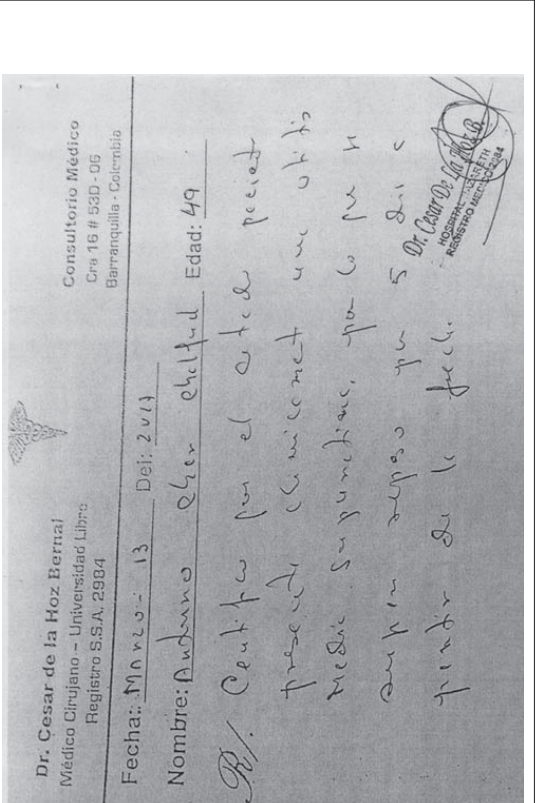 Dr. Cesar de la Hoz Bernal
Médico Cirujano – Universidad Libre
Registro S.S.A. 2984
Consultorio Médico
Cra 16 # 53D - 06
Barranquilla - Colombia
Fecha: Marzo - 13 Del: 2017
Nombre: Edad: 49
R/. Certifico por el citado
presenta clinicamente una otitis
media por lo que se
reposo por 5 dias a
partir de la fecha.
Dr. Cesar De La Hoz B.
HOSPITAL NAZARETH
REGISTRO MEDICO 2984